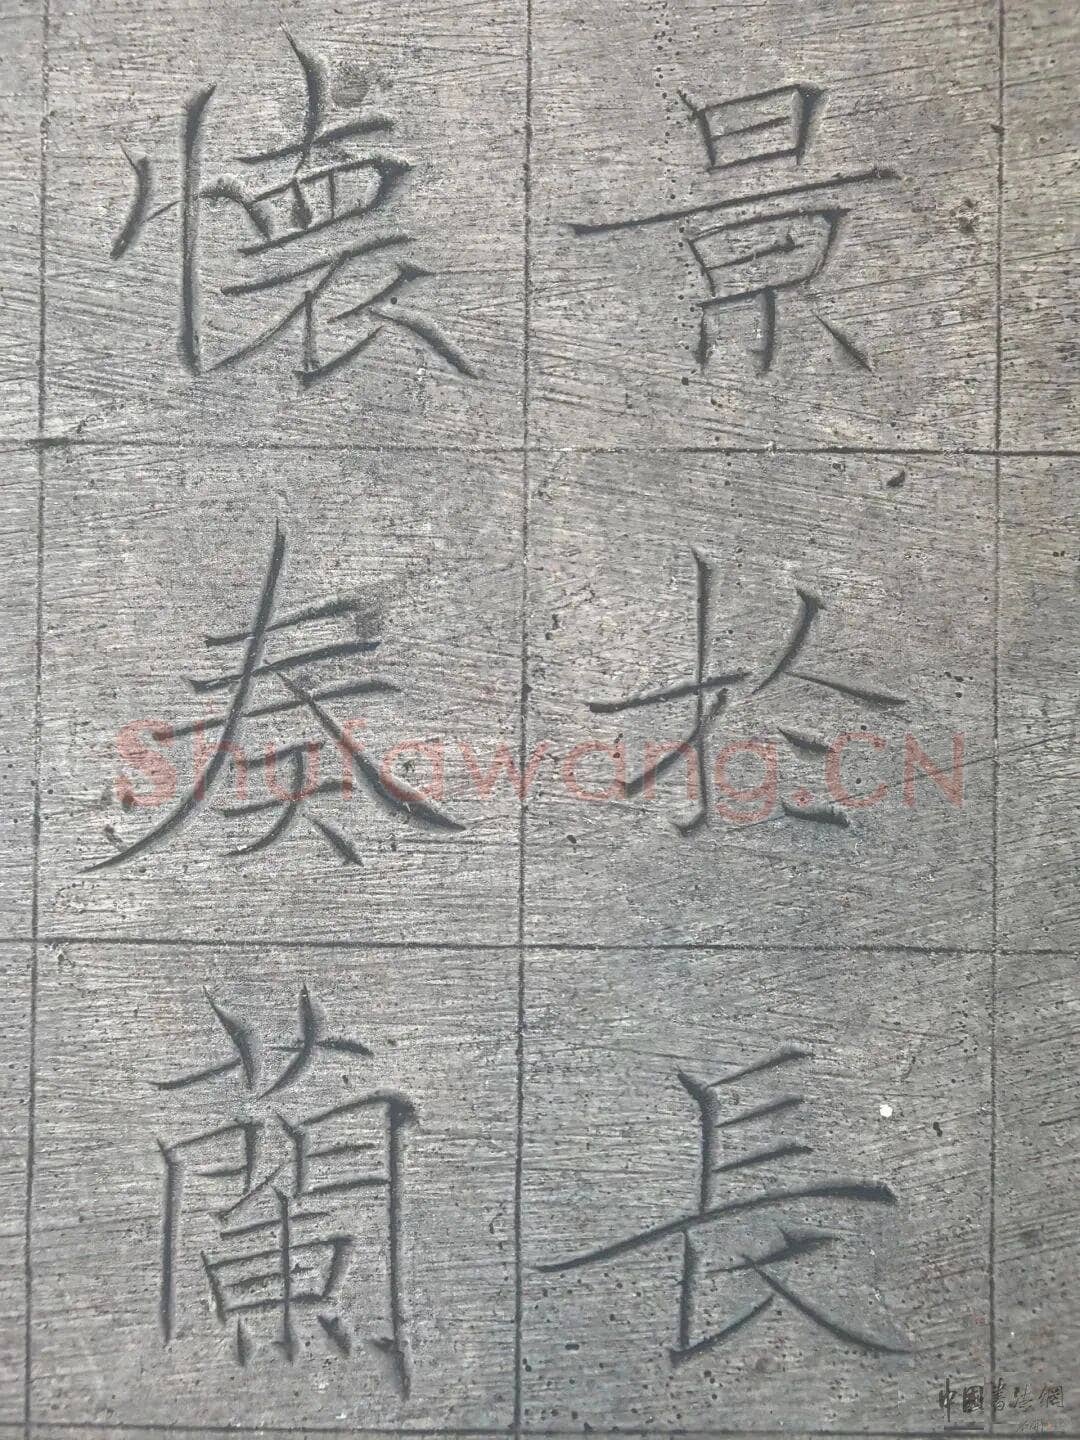 景於長
懷奏蘭
Shufawang.CN
中國書法網